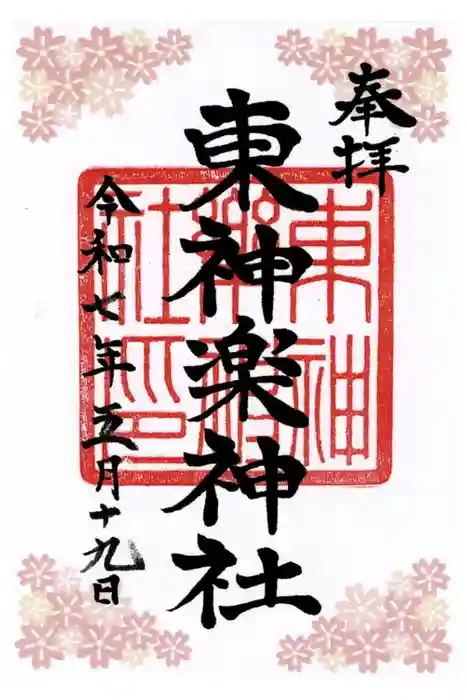 奉拝
東神楽神社
令和七年五月十九日
東神
楽神
社印